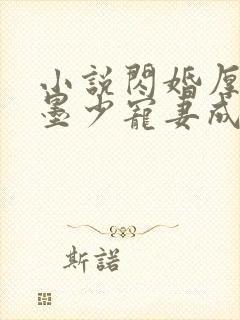 小說閃婚厚
墨少寵妻成
斯諾